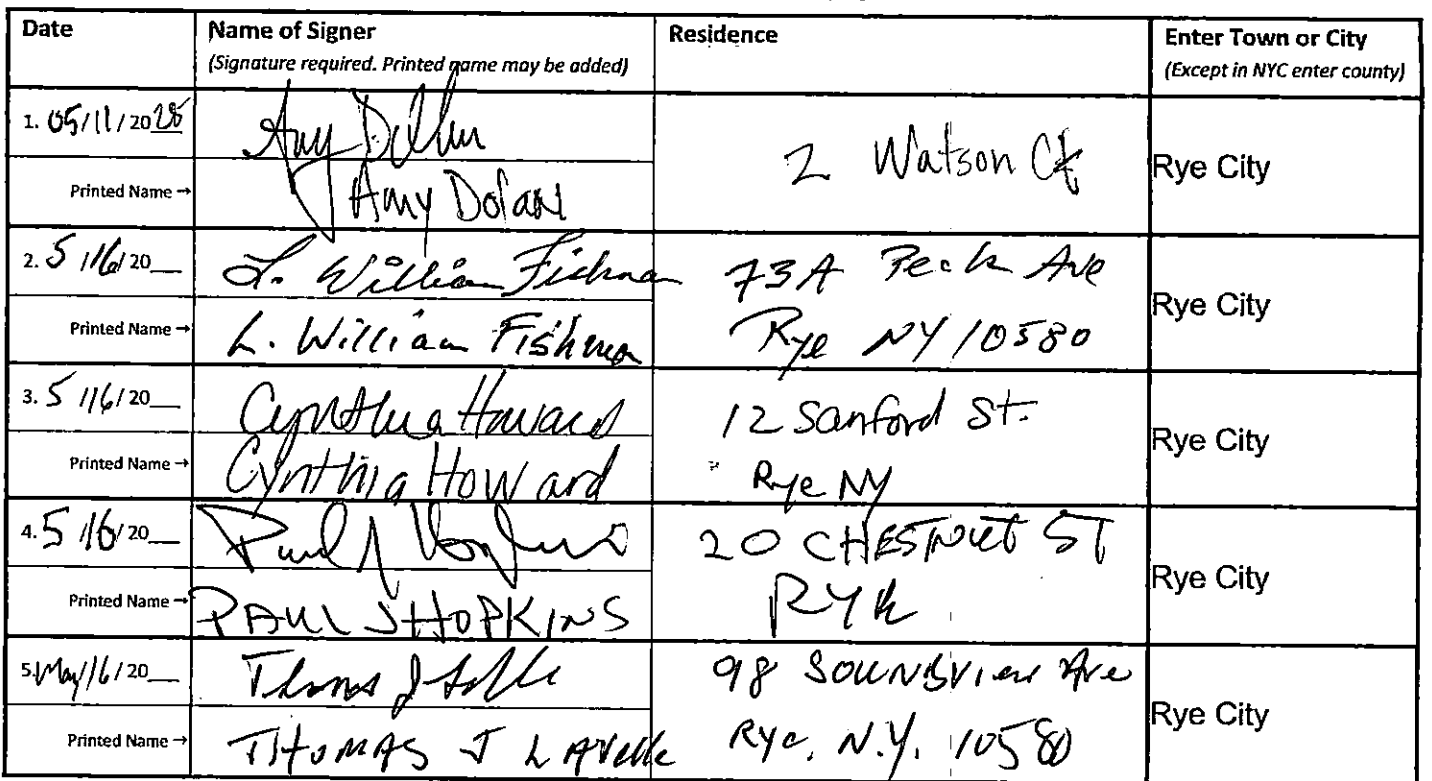 Date Name of Signer Residence Enter Town or City
(Signature required. Printed name may be added) (Except in NYC enter county)
1. 05/11/20 Amy 2 Watson Ct Rye City
Printed Name → Amy Dolan
2. 5/16/20__ L. William Fishman 73A Peck Ave Rye City
Printed Name → L. William Fishman Rye NY 10580
3. 5/16/20__ Cynthia Howard 12 Sanford St. Rye City
Printed Name → Cynthia Howard Rye NY
4. 5/16/20__ Paul J 20 CHESTNUT ST Rye City
Printed Name → PAUL J HOPKINS RYE
5. May/16/20__ Thomas J 98 SOUNDVIEW Ave Rye City
Printed Name → THOMAS J LAVelle Rye, N.Y. 10580